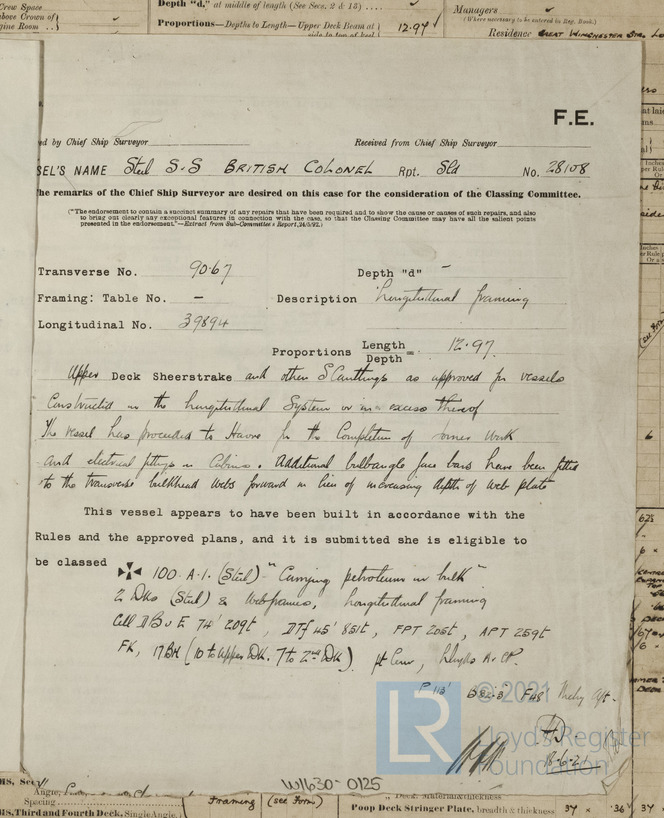 Crew Space
above Crown of
gine Room
Depth "d," at middle of length (See Secs. 2 & 13)
Proportions—Depths to Length—Upper Deck Beam at
side to top of keel
12.97
Managers
(Where necessary to be entered in Reg. Book.)
Residence Great Winchester
F.E.
ed by Chief Ship Surveyor
Received from Chief Ship Surveyor
SEL'S NAME Steel S.S BRITISH COLONEL Rpt. Sld No. 28108
he remarks of the Chief Ship Surveyor are desired on this case for the consideration of the Classing Committee.
("The endorsement to contain a succinct summary of any repairs that have been required and to show the cause or causes of such repairs, and also
to bring out clearly any exceptional features in connection with the case, so that the Classing Committee may have all the salient points
presented in the endorsement."—Extract from Sub-Committee's Report, 24/5/92.)
Transverse No. 90.67
Depth "d" -
Framing: Table No. -
Description Longitudinal framing
Longitudinal No. 39894
Proportions Length/Depth = 12.97
Upper Deck Sheerstrake and other Scantlings as approved for vessels
Constructed on the Longitudinal System or in excess thereof
The vessel has proceeded to Havre for the Completion of work
and electrical fittings in Cabins. Additional bulbangle face bars have been fitted
to the transverse bulkhead webs forward in lieu of increasing depth of web plate
This vessel appears to have been built in accordance with the
Rules and the approved plans, and it is submitted she is eligible to
be classed 100.A.1. (Steel) "Carrying petroleum in bulk"
2 Dks (Steel) & Webframes, Longitudinal framing
Cell D B u E 74' 209t, DTf 45' 851t, FPT 205t, APT 259t
FK, 17BH (10 to Upper Dk. 7 to 2nd Dk) pt Cem, Lloyds A & CP.
P 113' B 82.3' F 48'
18-6-21
LR
© 2021
Lloyd's Register
Foundation
W1630-0125
Spacing
Framing (see Form)
MS, Third and Fourth Deck, Single Angle,
Poop Deck Stringer Plate, breadth & thickness
37 × .36
37